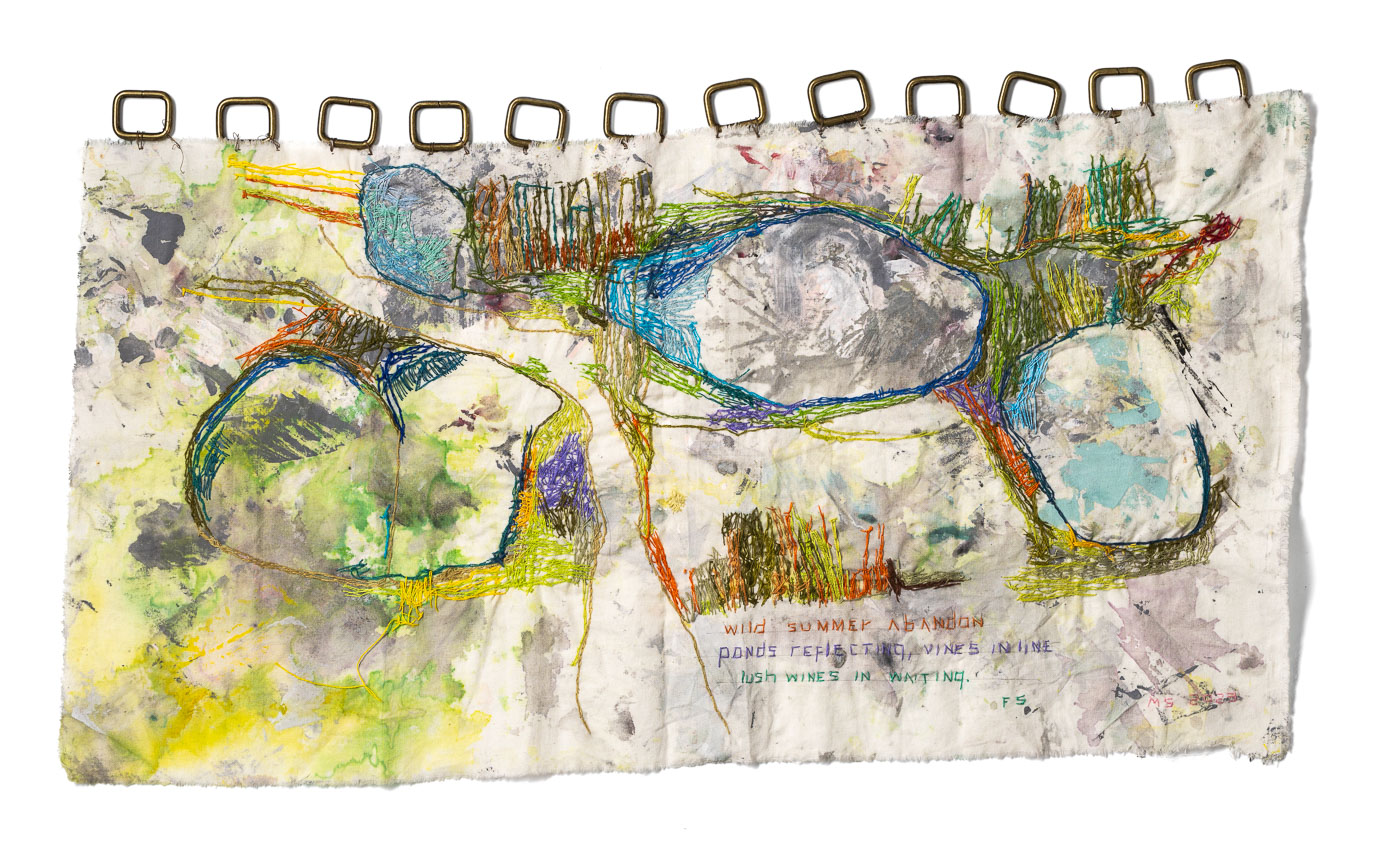 wild summer abandon
ponds reflecting, vines in line
lush wines in waiting.
FS
MS